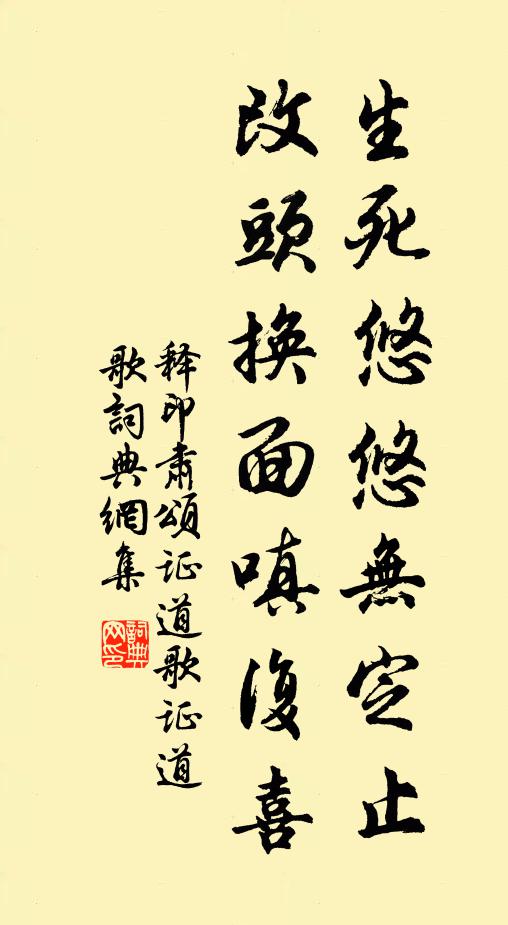 生死悠悠無定止
改頭換面嗔復喜
释印肃頌证道歌证道
歌詞典網集
詞典
网印